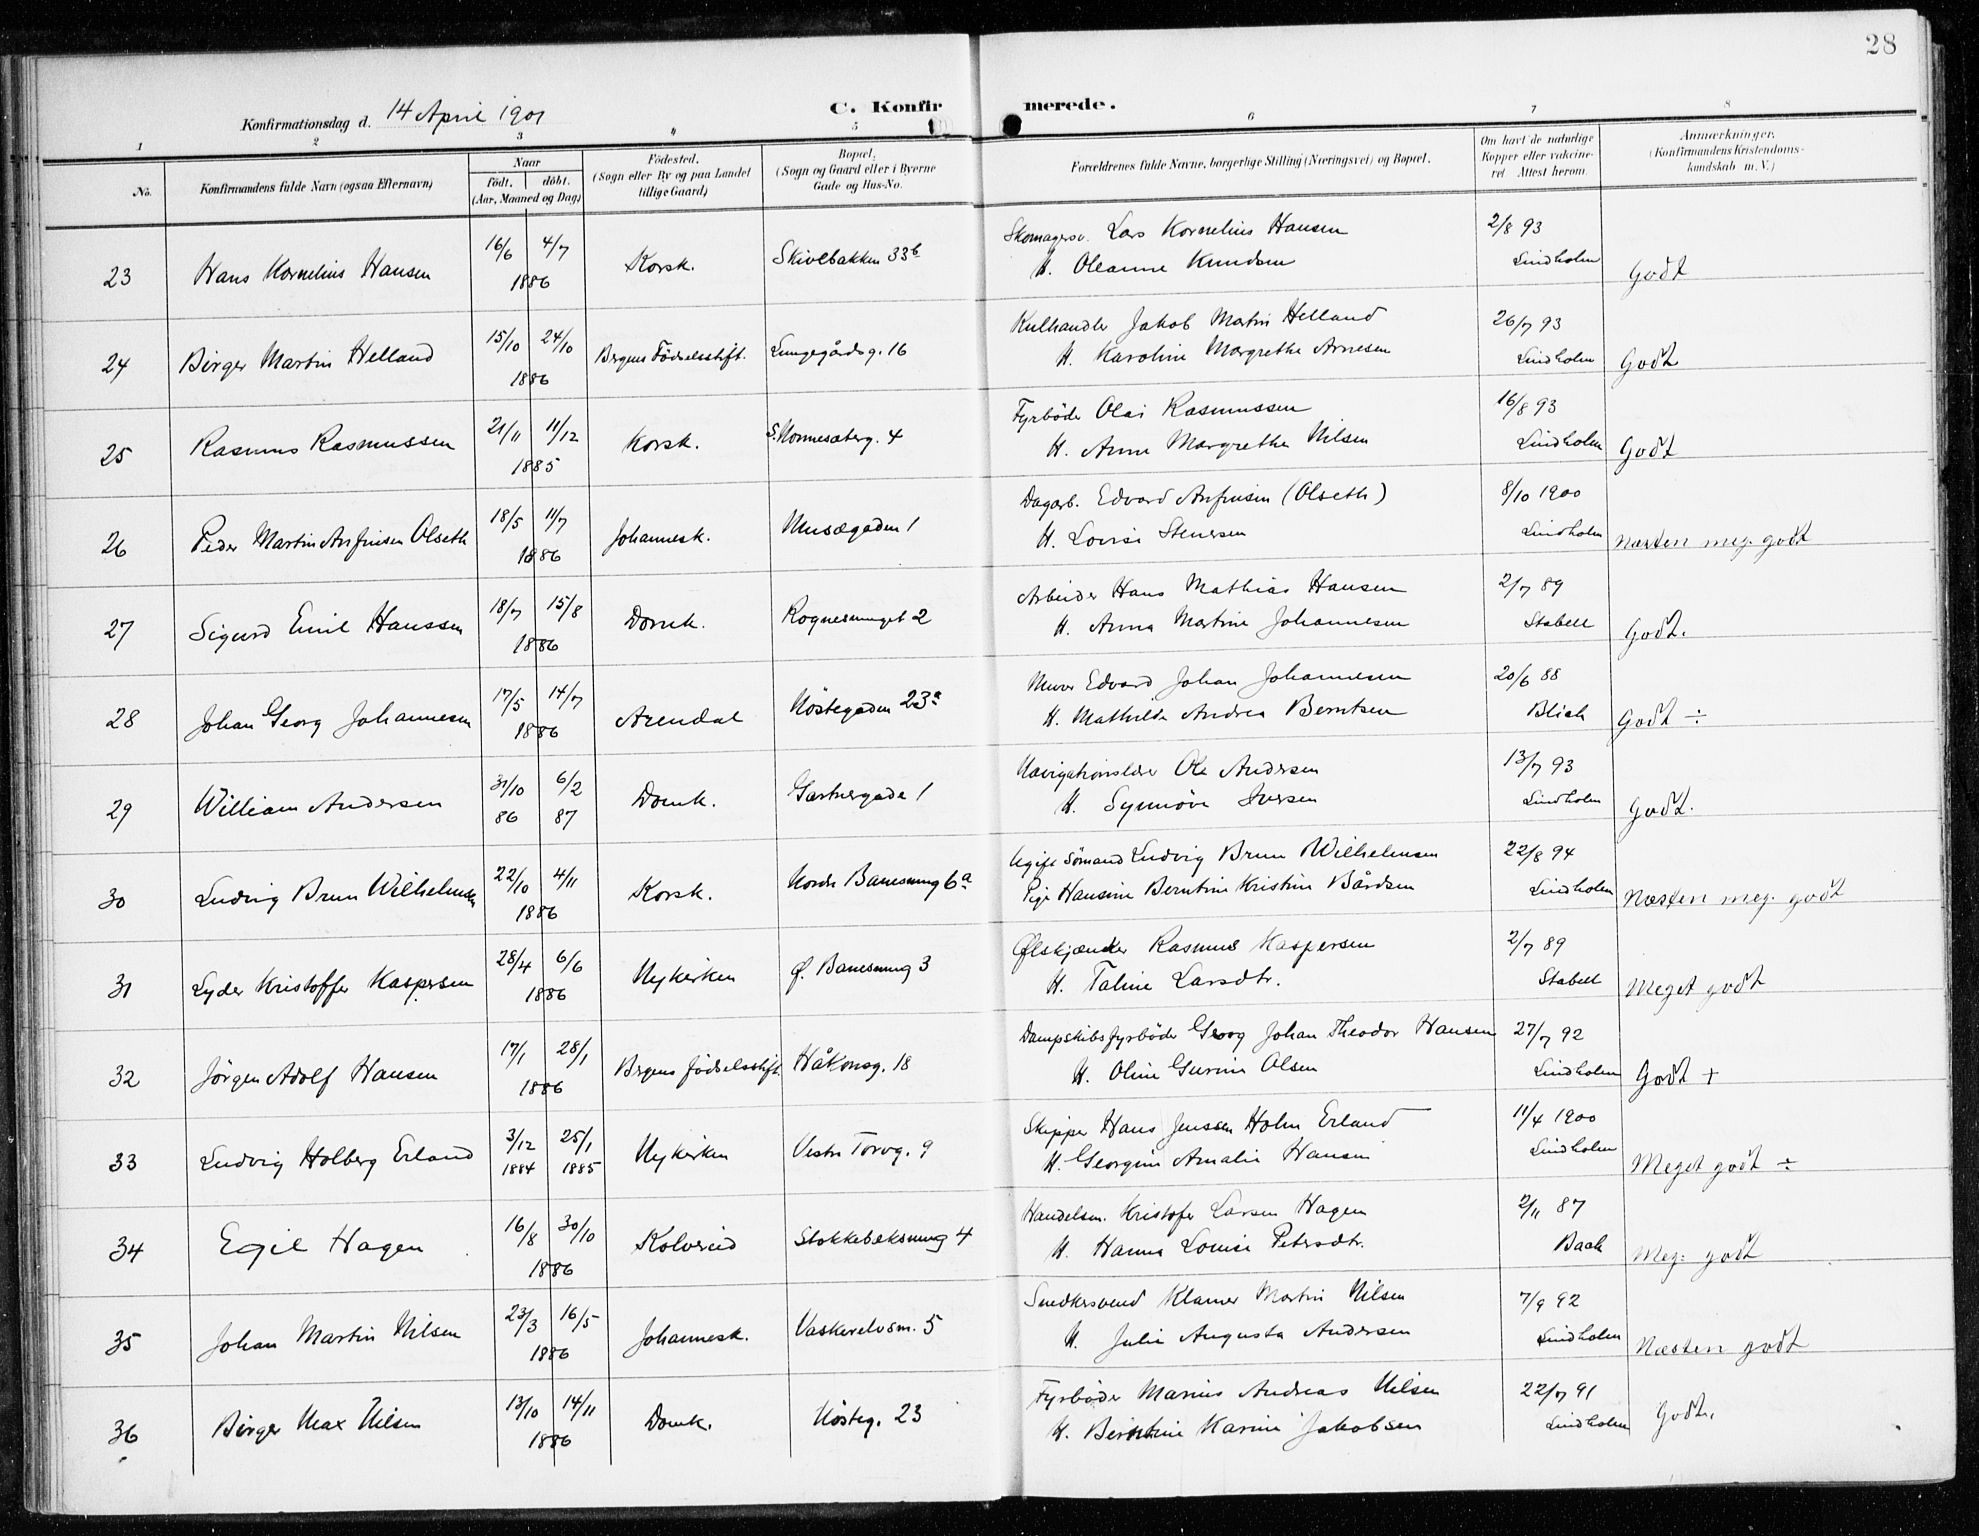 28
Konfirmationsdag d. 14 April 1901
C. Konfirmerede.
1 2 3 4 5 6 7 8
No.
Konfirmandens fulde Navn (ogsaa Efternavn)
Naar
födt. döbt.
(Aar, Maaned og Dag)
Födested.
(Sogn eller By og paa Landet
tillige Gaard)
Bopæl.
(Sogn og Gaard eller i Byerne
Gade og Hus-No.
Forældrenes fulde Navne, borgerlige Stilling (Næringsvei) og Bopæl.
Om havt de naturlige
Kopper eller vakcine-
ret Attest herom.
Anmærkninger.
(Konfirmandens Kristendoms-
kundskab m. V.)
23 Hans Kornelius Hansen 16/6 4/7 1886 Korsk. Skivebakken 33b
Skomagersv. Lars Kornelius Hansen 2/8 93
H. Oleanne Knudsen Lindholm Godt
24 Birger Martin Helland 15/10 24/10 1886 Bergens Födselsstift. Lungegårdsg. 16
Kulhandler Jakob Martin Helland 26/7 93
H. Karoline Margrethe Arnesen Lindholm Godt
25 Rasmus Rasmussen 21/11 11/12 1885 Korsk. S. Nonnesæterg. 4
Fyrböder Olai Rasmussen 16/8 93
H. Anne Margrethe Nilsen Lindholm Godt
26 Peder Martin Anfinsen Olseth 18/5 11/7 1886 Johannesk. Musægaden 1
Dagarb. Edvard Anfinsen (Olseth) 8/10 1900
H. Lovise Stenersen Lindholm Næsten meg. godt
27 Sigurd Emil Hanssen 18/7 15/8 1886 Domk. Rognesmuget 2
Arbeider Hans Mathias Hansen 2/7 89
H. Anna Martine Johannesen Stabell Godt.
28 Johan Georg Johannesen 17/5 14/7 1886 Arendal Nöstegaden 23a
Murer Edvard Johan Johannesen 20/6 88
H. Mathilde Andrea Berntsen Blich Godt ÷
29 William Andersen 31/10 86 6/2 87 Domk. Gartnergade 1
Navigationslærer Ole Andersen 13/7 93
H. Synnöve Iversen Lindholm Godt.
30 Ludvig Brun Wilhelmsen 22/10 4/11 1886 Korsk. Nordre Banesmug 6a
Ugift Sömand Ludvig Brun Wilhelmsen 22/8 94
Pige Hansine Berntine Kristine Bårdsen Lindholm Næsten meg. godt
31 Lyder Kristoffer Kaspersen 28/4 6/6 1886 Nykirken Ø. Banesmug 3
Ølskjænker Rasmus Kaspersen 2/7 89
H. Taline Larsdtr. Stabell Meget godt
32 Jörgen Adolf Hansen 17/1 28/1 1886 Bergens födselsstift. Håkonsg. 18
Dampskibsfyrböder Georg Johan Theodor Hansen 27/7 92
H. Oline Gurine Olsen Lindholm Godt +
33 Ludvig Holberg Erland 3/12 1884 25/1 1885 Nykirken Vestre Torvg. 9
Skipper Hans Jenssen Holm Erland 11/4 1900
H. Georgine Amalie Hansen Lindholm Meget godt ÷
34 Egil Hagen 16/8 30/10 1886 Kolvereid Stokkebeksmug 4
Handelsm. Kristofer Larsen Hagen 2/11 87
H. Hanna Louise Petersdtr. Back Meg. godt
35 Johan Martin Nilsen 23/3 16/5 1886 Johannesk. Vaskerelvsm. 5
Snedkersvend Klamer Martin Nilsen 7/9 92
H. Julie Augusta Andersen Lindholm Næsten godt
36 Birger Max Nilsen 13/10 14/11 1886 Domk. Nösteg. 23
Fyrböder Marius Andreas Nilsen 22/7 91
H. Berntine Karine Jakobsen Lindholm Godt.